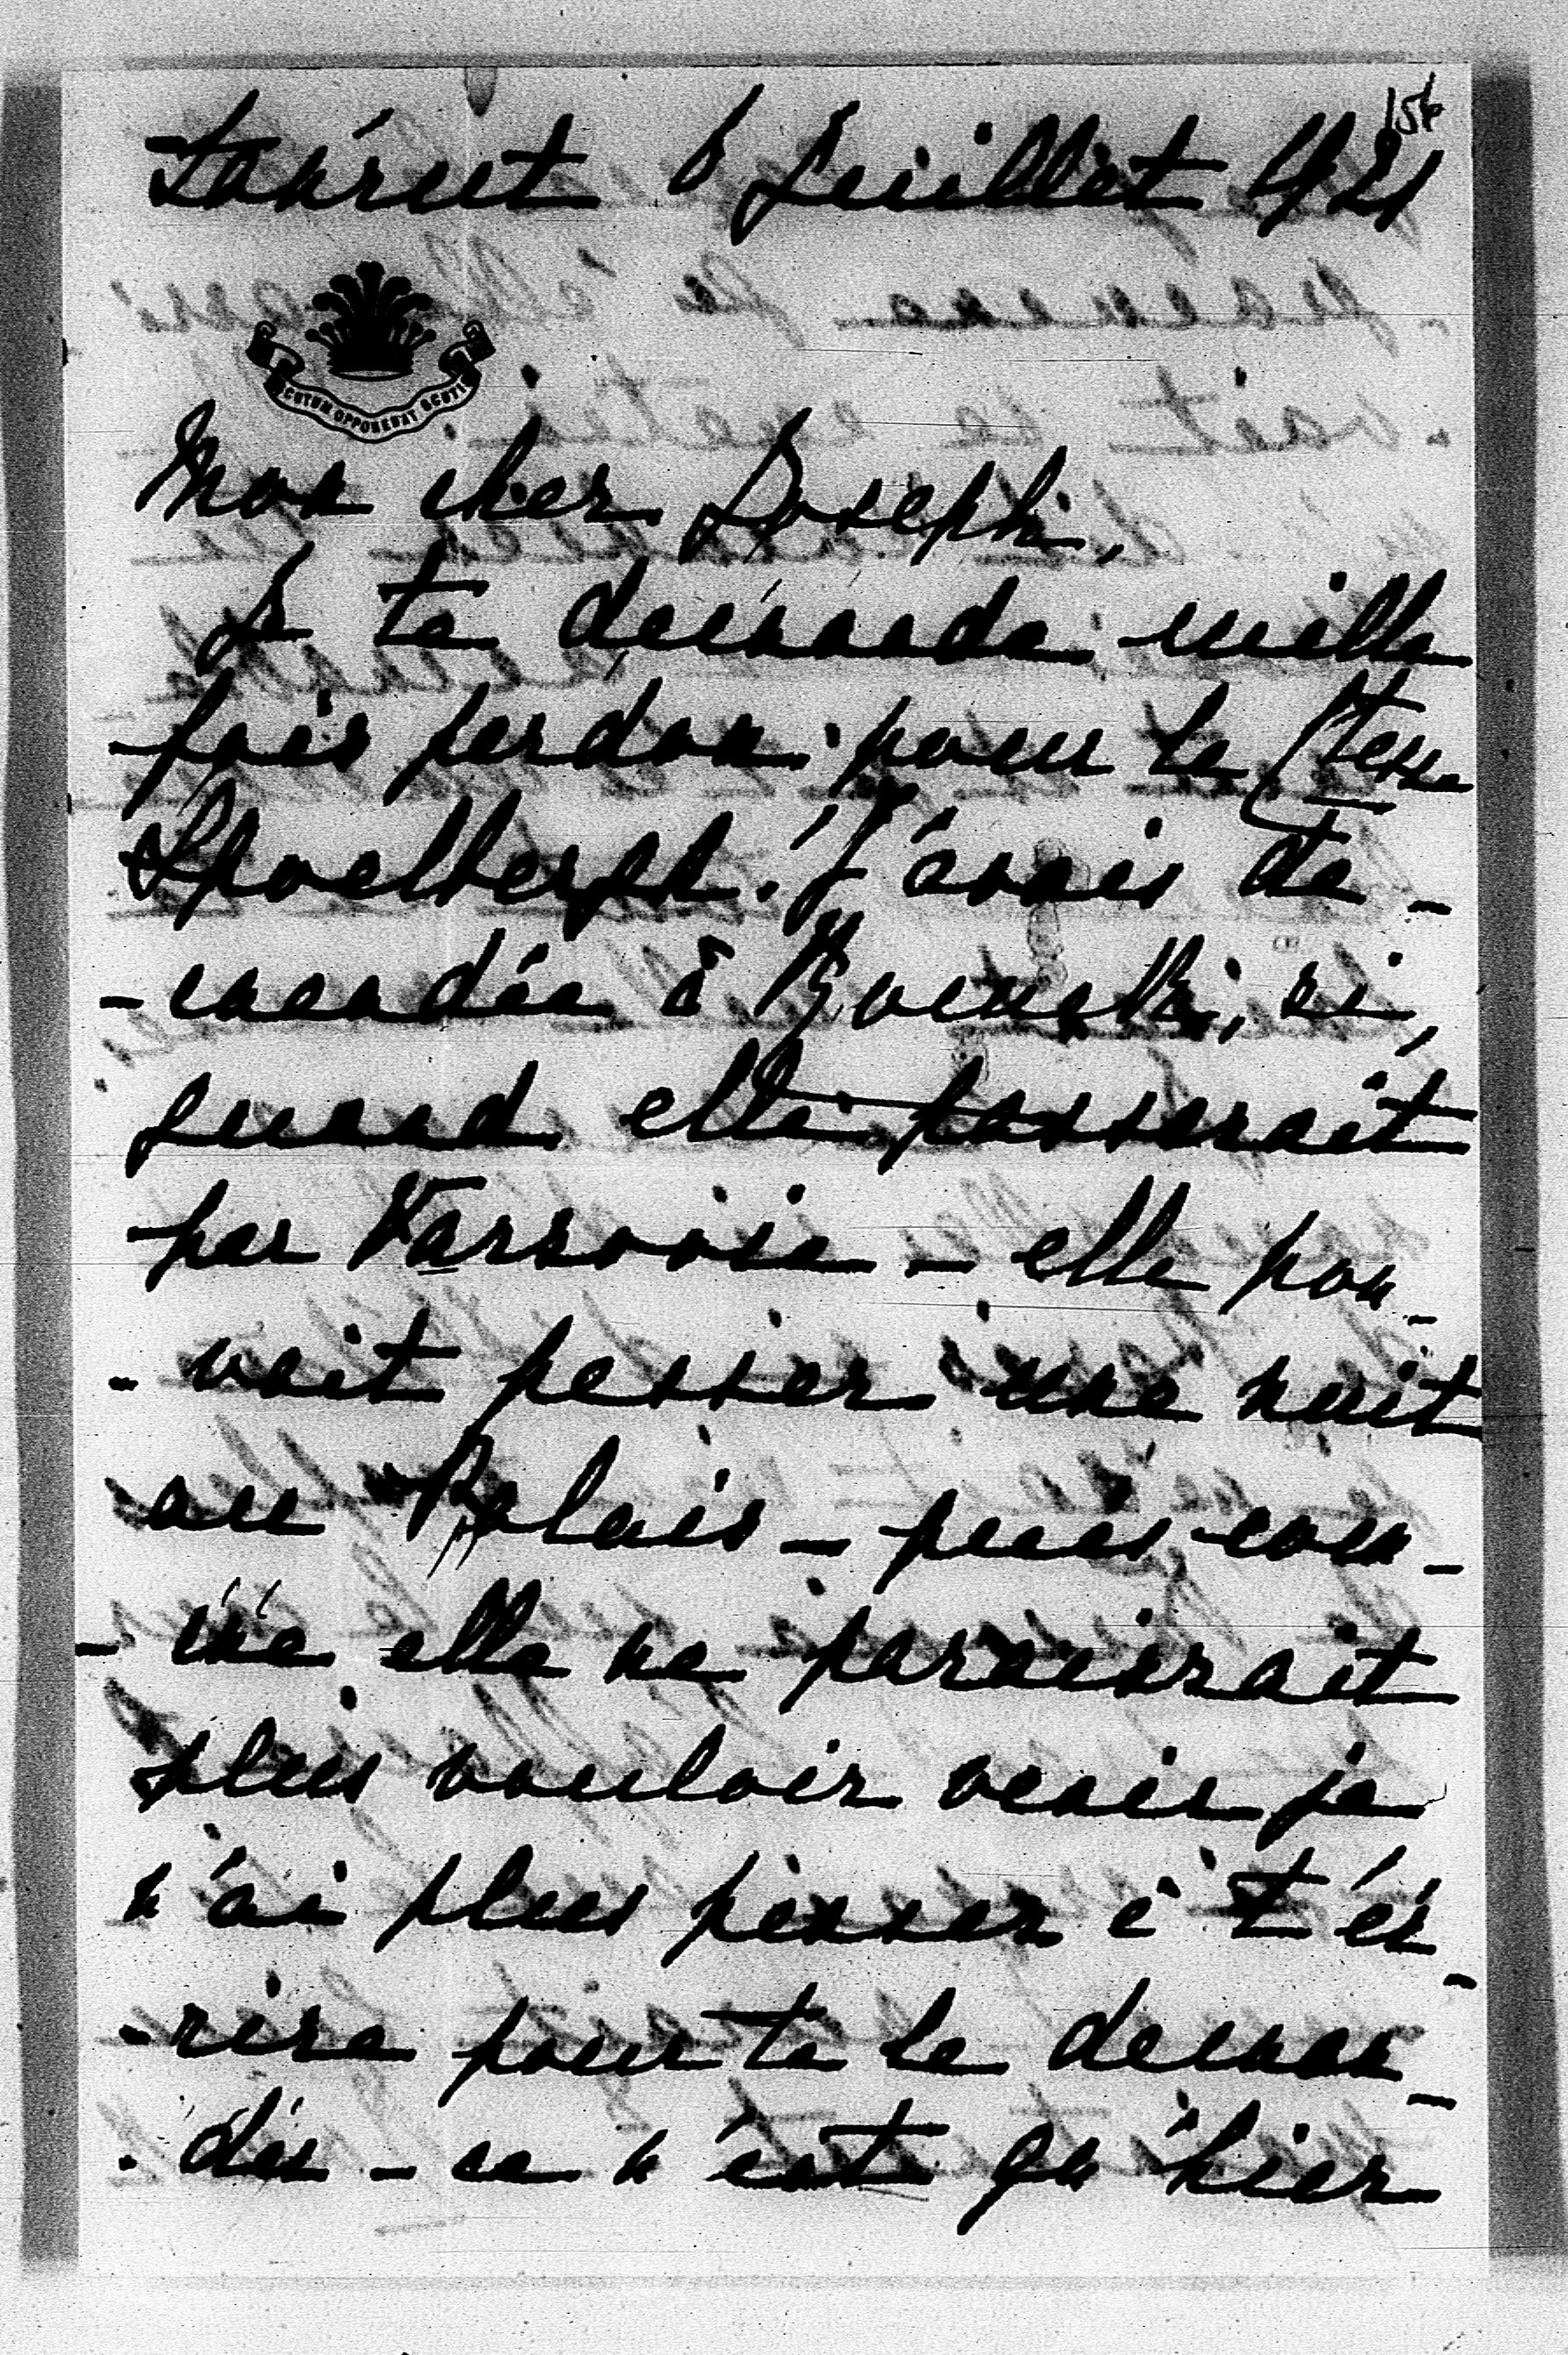 Łańcut 6 Juillet 1921
156
SCUTUM OPPONEBAT SCUTIS
Mon cher Joseph,
Je te demande mille
fois pardon pour la Ctesse
Spoelbergh. J'avais de-
-mandée à
si,
quand elle passerait
par Varsovie - elle pou-
-vait passer une nuit
au Palais - puis com-
-me elle ne paraissait
plus vouloir venir je
n'ai plus penser à t'éc-
-rire pour te le deman-
-der - ce n'est qu'hier